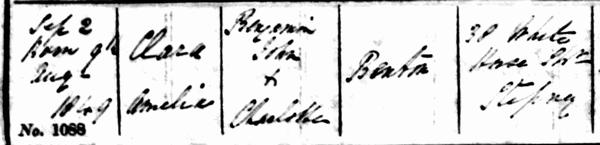 Sep 2
Born 9th
Augt
1849
No. 1088
Clara
Amelia
Benjamin
John
+
Charlotte
Benton
38 White
Horse Str
Stepney